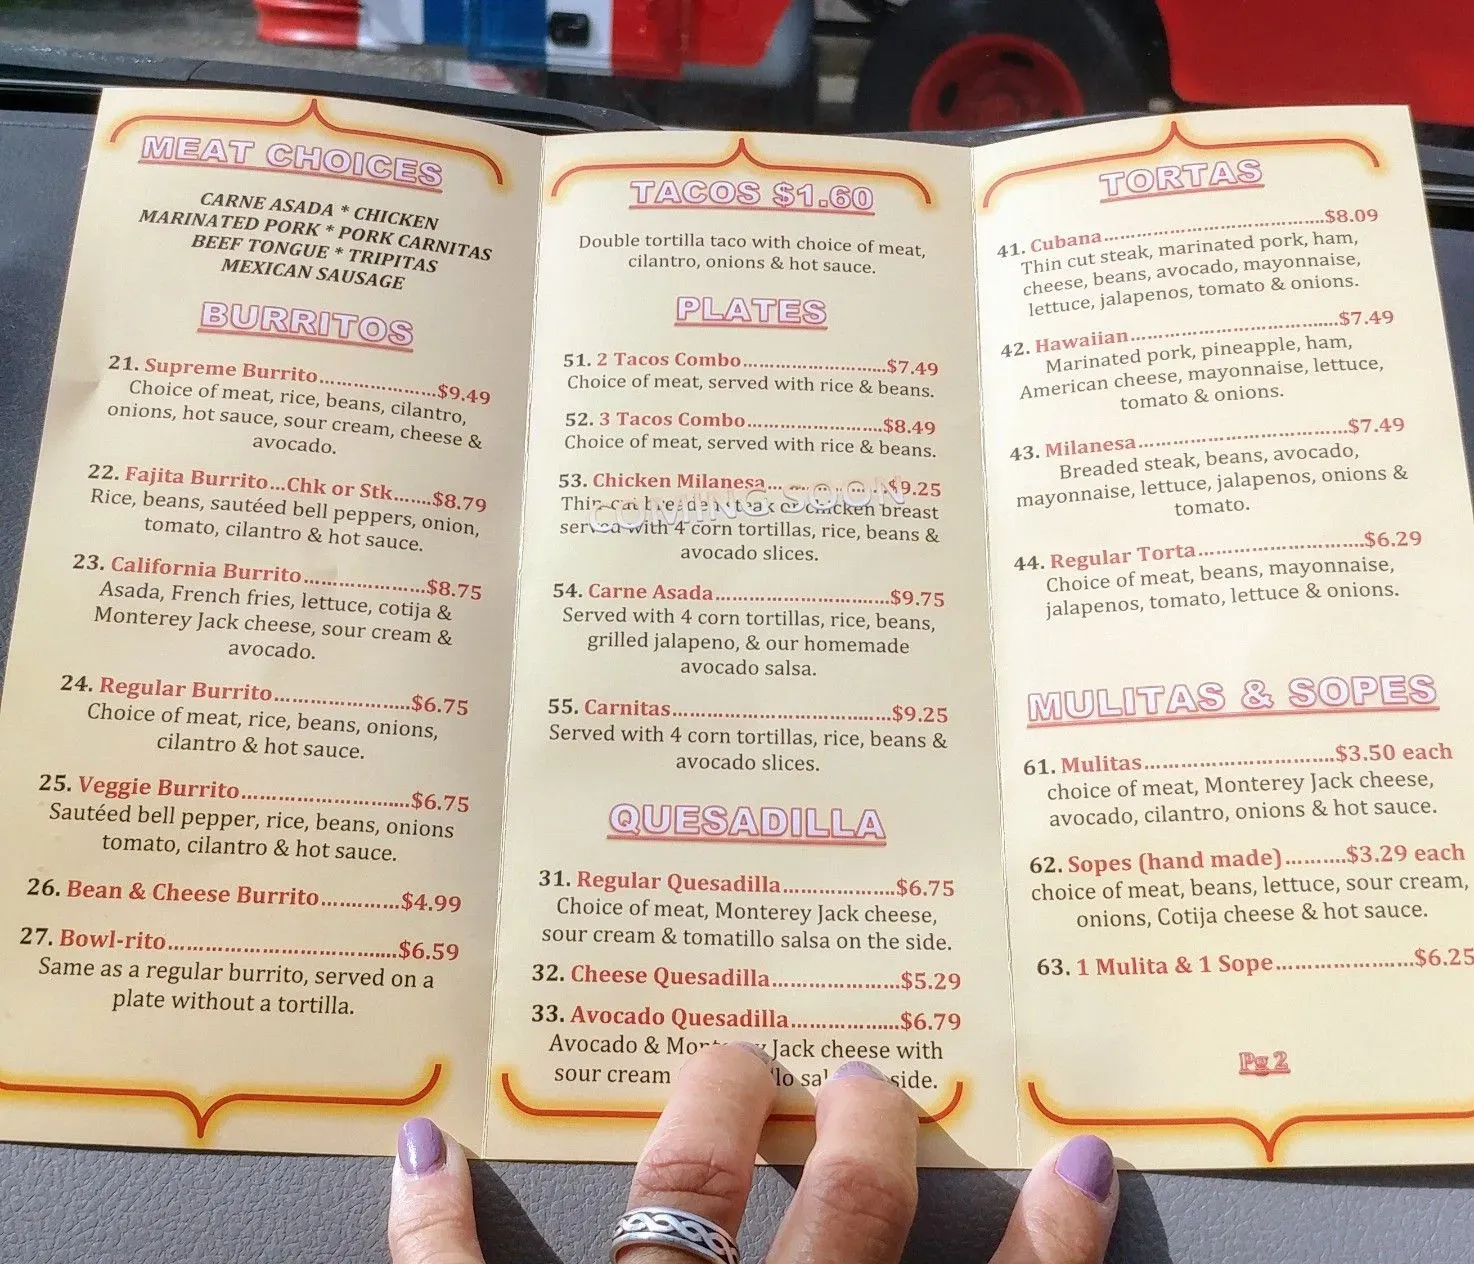 MEAT CHOICES
CARNE ASADA * CHICKEN
MARINATED PORK * PORK CARNITAS
BEEF TONGUE * TRIPITAS
MEXICAN SAUSAGE
BURRITOS
21. Supreme Burrito....................$9.49
Choice of meat, rice, beans, cilantro,
onions, hot sauce, sour cream, cheese &
avocado.
22. Fajita Burrito...Chk or Stk......$8.79
Rice, beans, sautéed bell peppers, onion,
tomato, cilantro & hot sauce.
23. California Burrito.....................$8.75
Asada, French fries, lettuce, cotija &
Monterey Jack cheese, sour cream &
avocado.
24. Regular Burrito.......................$6.75
Choice of meat, rice, beans, onions,
cilantro & hot sauce.
25. Veggie Burrito............................$6.75
Sautéed bell pepper, rice, beans, onions
tomato, cilantro & hot sauce.
26. Bean & Cheese Burrito.............$4.99
27. Bowl-rito.......................................$6.59
Same as a regular burrito, served on a
plate without a tortilla.
TACOS $1.60
Double tortilla taco with choice of meat,
cilantro, onions & hot sauce.
PLATES
51. 2 Tacos Combo.........................$7.49
Choice of meat, served with rice & beans.
52. 3 Tacos Combo.......................$8.49
Choice of meat, served with rice & beans.
53. Chicken Milanesa.....................$9.25
COMING SOON
Thin cut breaded steak or chicken breast
served with 4 corn tortillas, rice, beans &
avocado slices.
54. Carne Asada..............................$9.75
Served with 4 corn tortillas, rice, beans,
grilled jalapeno, & our homemade
avocado salsa.
55. Carnitas......................................$9.25
Served with 4 corn tortillas, rice, beans &
avocado slices.
QUESADILLA
31. Regular Quesadilla...................$6.75
Choice of meat, Monterey Jack cheese,
sour cream & tomatillo salsa on the side.
32. Cheese Quesadilla......................$5.29
33. Avocado Quesadilla..................$6.79
Avocado & Jack cheese with
sour cream side.
TORTAS
41. Cubana......................................$8.09
Thin cut steak, marinated pork, ham,
cheese, beans, avocado, mayonnaise,
lettuce, jalapenos, tomato & onions.
42. Hawaiian...................................$7.49
Marinated pork, pineapple, ham,
American cheese, mayonnaise, lettuce,
tomato & onions.
43. Milanesa...................................$7.49
Breaded steak, beans, avocado,
mayonnaise, lettuce, jalapenos, onions &
tomato.
44. Regular Torta............................$6.29
Choice of meat, beans, mayonnaise,
jalapenos, tomato, lettuce & onions.
MULITAS & SOPES
61. Mulitas................................$3.50 each
choice of meat, Monterey Jack cheese,
avocado, cilantro, onions & hot sauce.
62. Sopes (hand made)..........$3.29 each
choice of meat, beans, lettuce, sour cream,
onions, Cotija cheese & hot sauce.
63. 1 Mulita & 1 Sope.......................$6.25
Pg 2